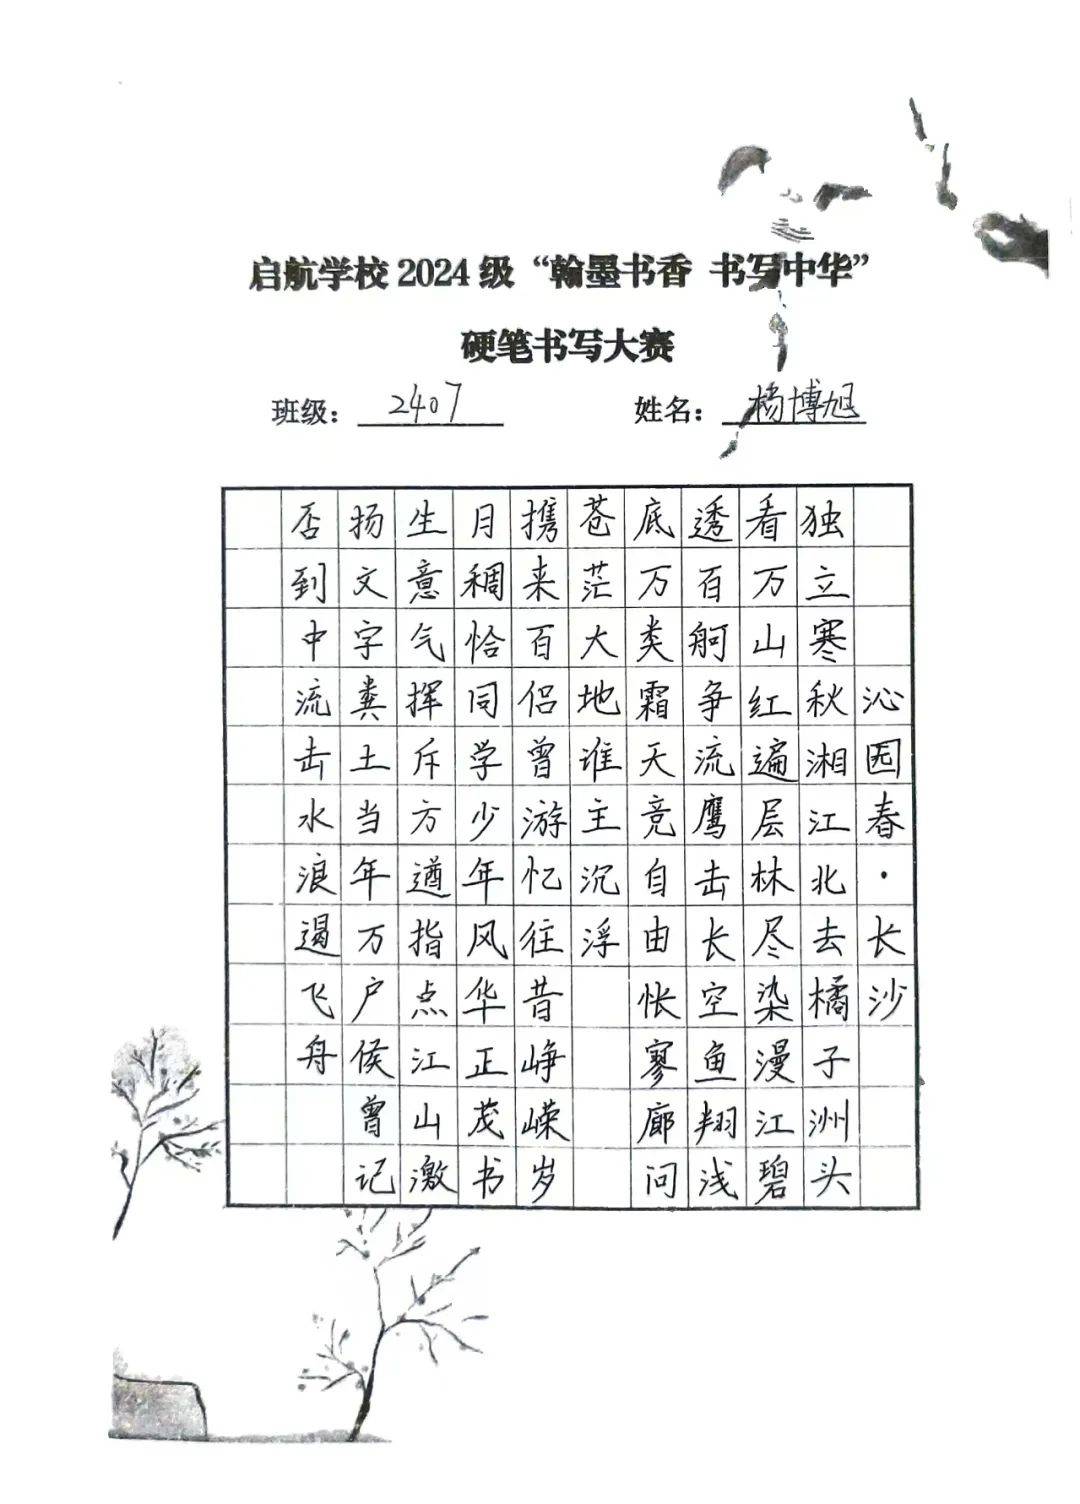 启航学校 2024 级“翰墨书香 书写中华”
硬笔书写大赛
班级：2407 姓名：杨博旭
沁园春·长沙
独立寒秋湘江北去橘子洲头
看万山红遍层林尽染漫江碧
透百舸争流鹰击长空鱼翔浅
底万类霜天竞自由怅寥廓问
苍茫大地谁主沉浮
携来百侣曾游忆往昔峥嵘岁
月稠恰同学少年风华正茂书
生意气挥斥方遒指点江山激
扬文字粪土当年万户侯曾记
否到中流击水浪遏飞舟